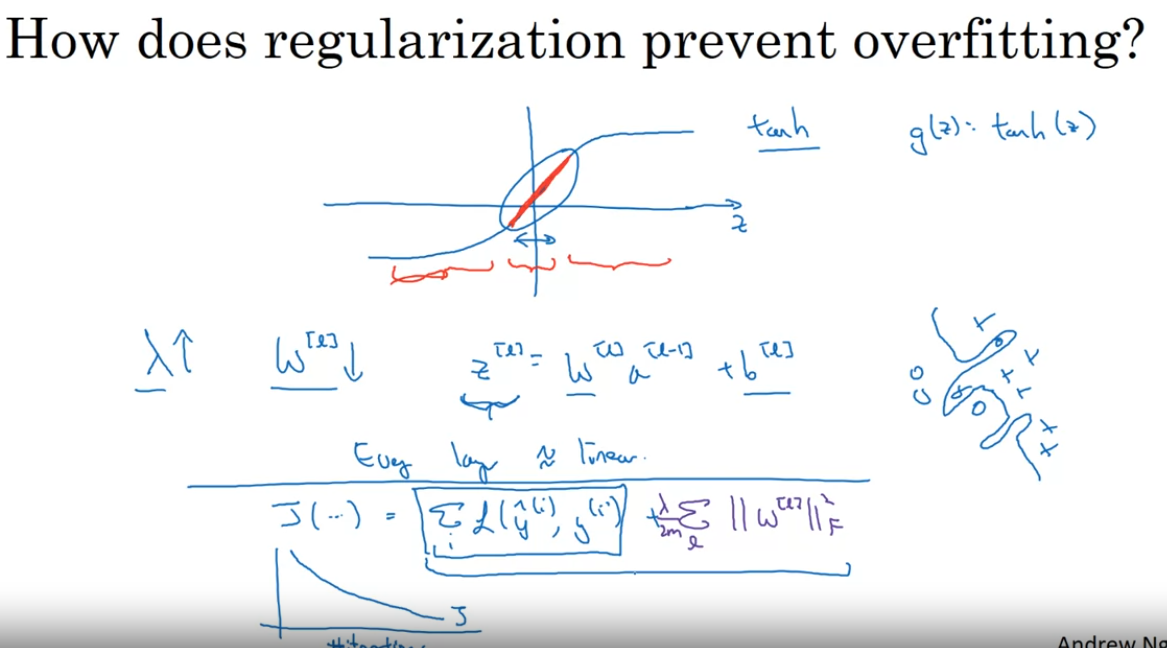 How does regularization prevent overfitting?
tanh g(z) = tanh(z)
z
λ↑ W^[l]↓ z^[l] = W^[l] a^[l-1] + b^[l]
Every layer ≈ linear.
J(...) = Σ_i L(ŷ^(i), y^(i)) + λ/2m Σ_l ||W^[l]||²_F
J
Andrew Ng